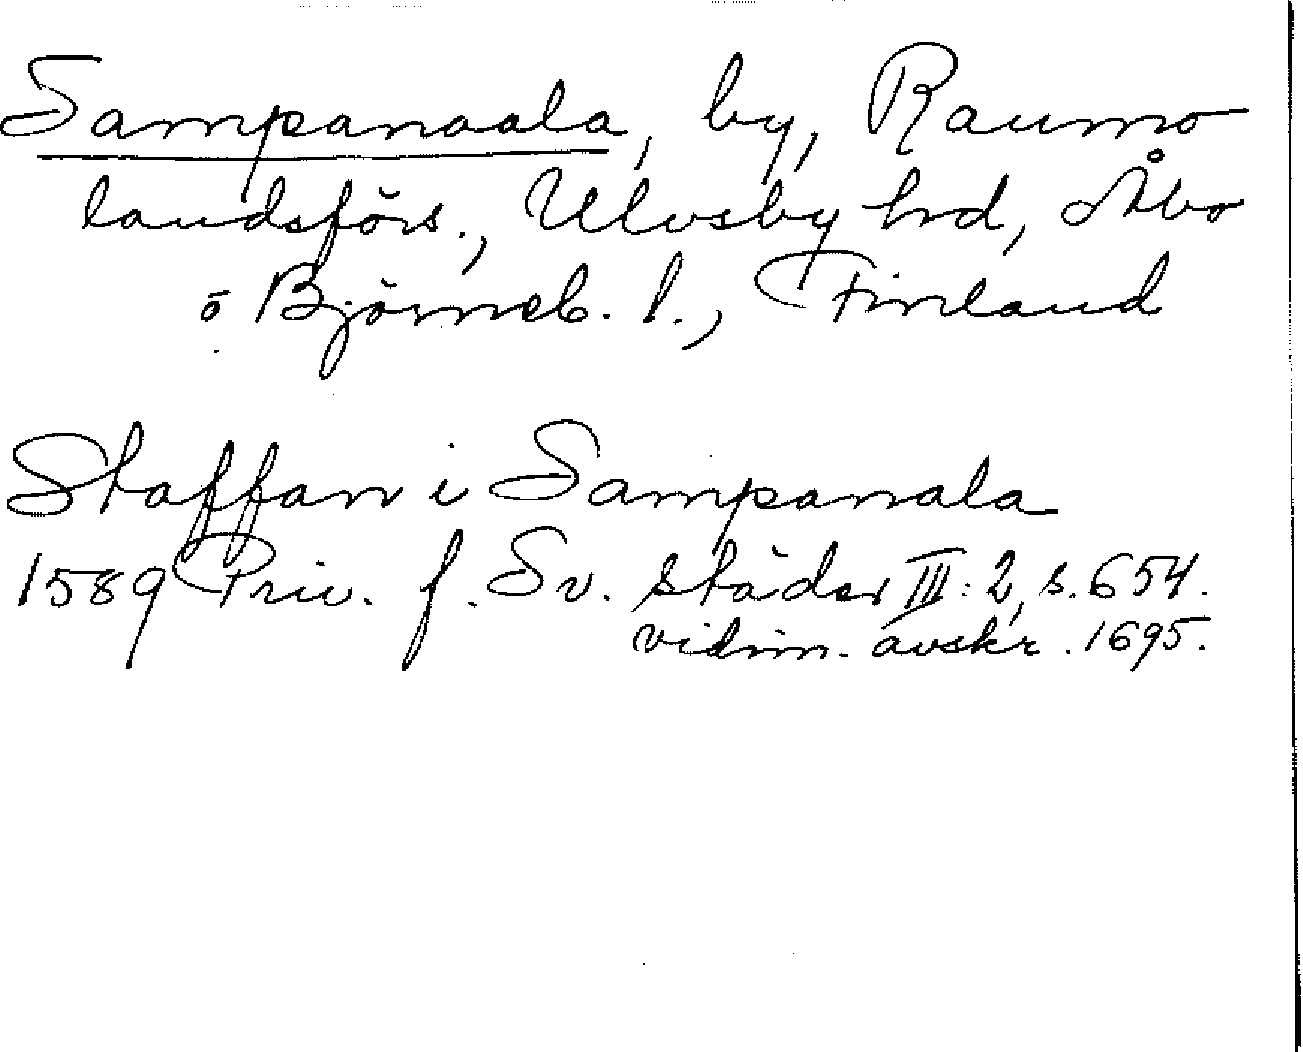 Sampanaala, by, Raumo
landsförs., Ulvsby hd, Åbo
o Björneb. l., Finland
Staffan i Sampanala
1589 Priv. f. Sv. städer III:2, s. 654.
vidim. avskr. 1695.